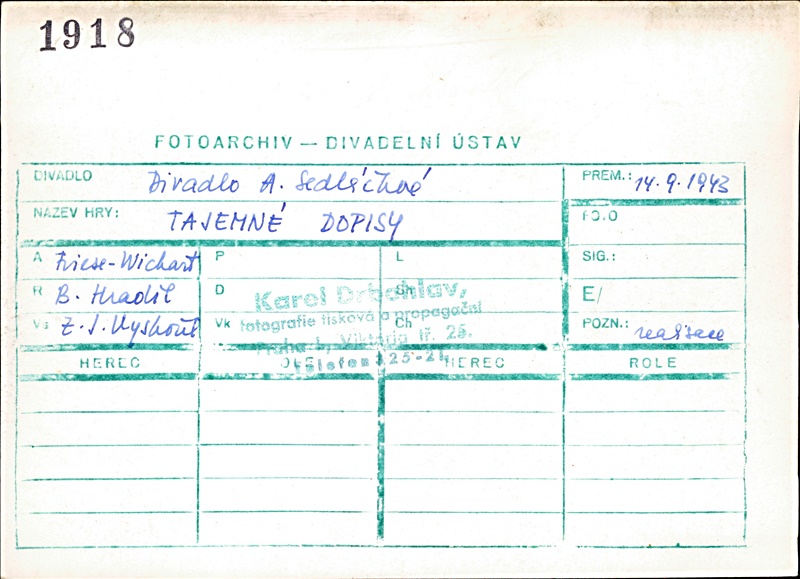 1918
FOTOARCHIV — DIVADELNÍ ÚSTAV
DIVADLO Divadlo A. Sedláčkové PREM.: 14.9.1943
NÁZEV HRY: TAJEMNÉ DOPISY FO.O
A Friese-Wichart P L SIG.:
R B. Hradil D Sh E/
Vs Z. J. Vyskočil Vk Ch POZN.: realisace
Karel Drbohlav,
fotografie tisková a propagační
Praha-I, Viktoria tř. 25.
Telefon 325-21
HEREC HEREC ROLE